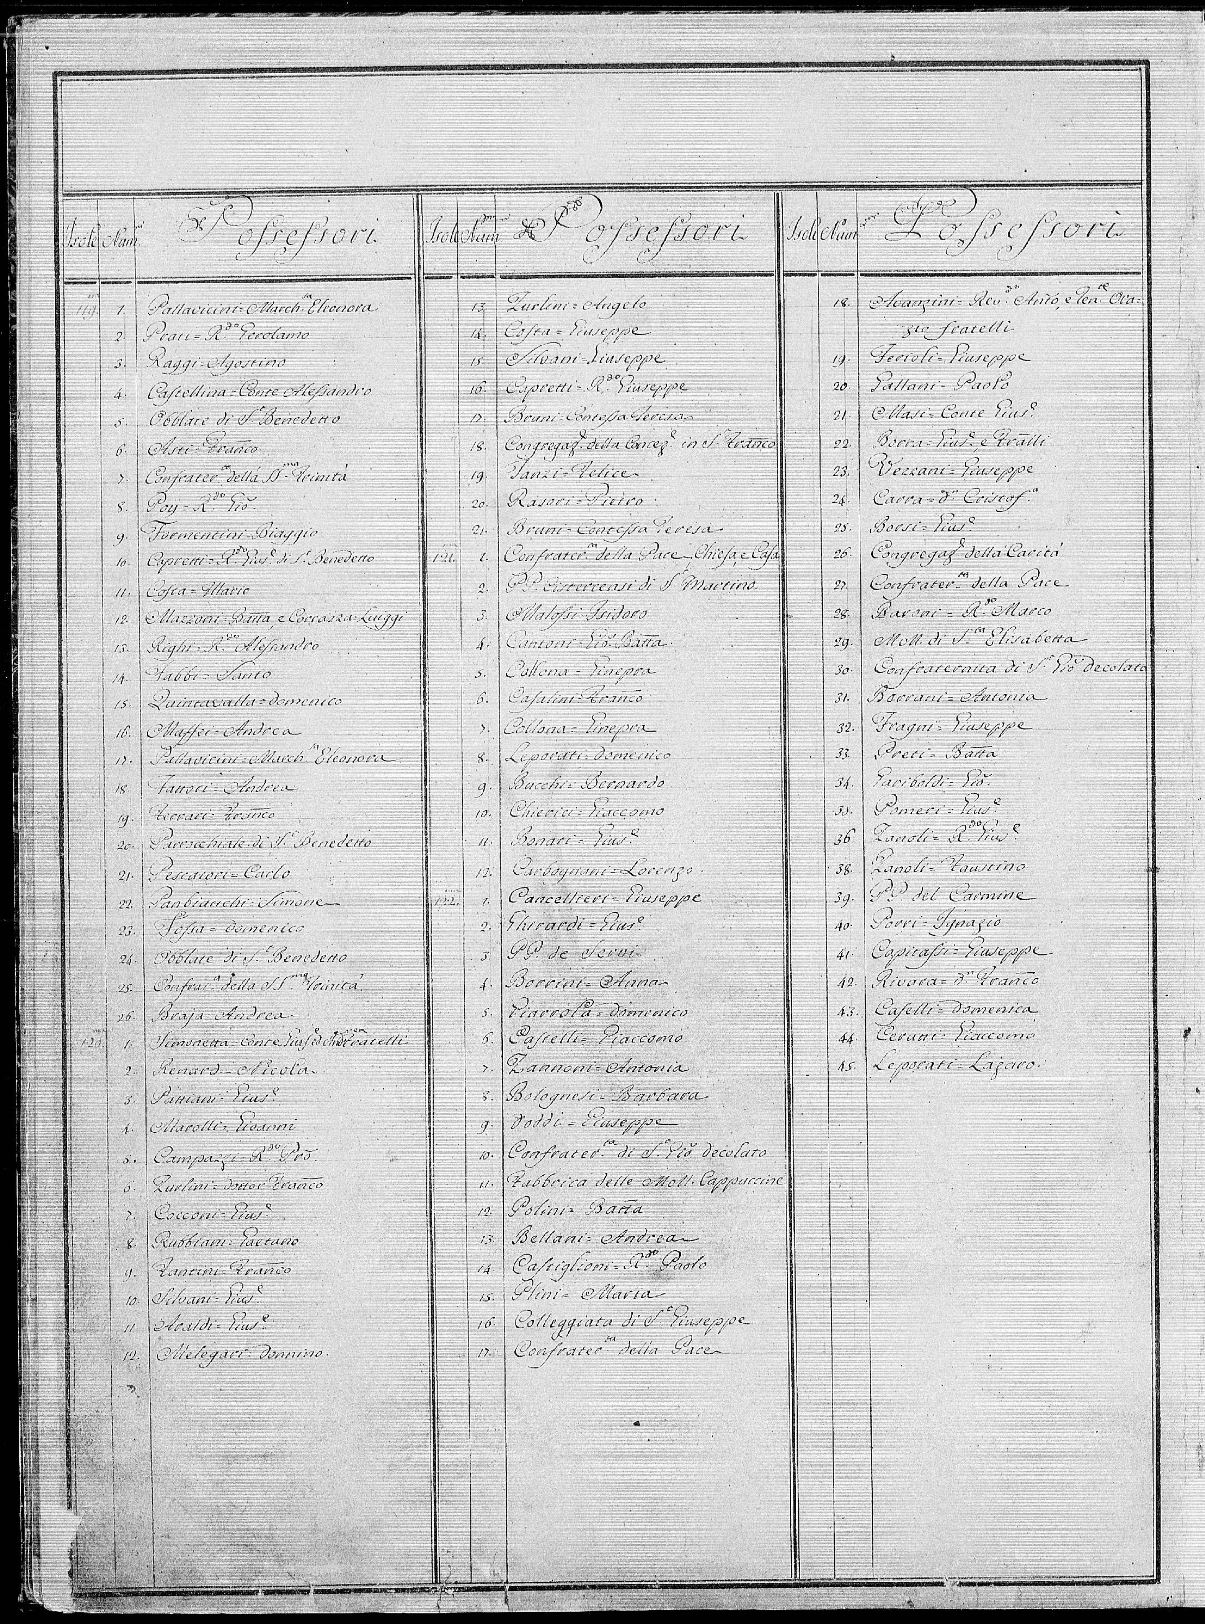 Isole Num. Possessori
119. 1. Pallavicini = March.sa Eleonora
2. Prati = R.do Gerolamo
3. Raggi = Agostino
4. Castellina = Conte Alessandro
5. Obblate di S. Benedetto
6. Asti = Franco
7. Confrater.ta della SS.ma Trinità
8. Poy = R.do Gio.
9. Formentini = Biaggio
10. Capretti = R.do Gius.e di S. Benedetto
11. Costa = Mario
12. Mazzoni = Batta e Corrazza Luiggi
13. Righi = R.do Alessandro
14. Fabbi = Santo
15. Quintavalla = Domenico
16. Maffei = Andrea
17. Pallavicini = March.sa Eleonora
18. Fattori = Andrea
19. Ferrari = Franco
20. Parrocchiale di S. Benedetto
21. Pescatori = Carlo
22. Panbianchi = Simone
23. Fossa = Domenico
24. Obblate di S. Benedetto
25. Confrat.a della SS.ma Trinità
26. Braja = Andrea
120. 1. Simonetta = Conte Gius.e Fratelli
2. Renard = Nicola
3. Pattiani = Gius.e
4. Marolli = Gioanni
5. Campazzi = R.do Pro.
6. Zurlini = Dottor Franco
7. Cocconi = Gius.e
8. Rubbiani = Gaetano
9. Zantini = Franco
10. Silvani = Gius.e
11. Araldi = Gius.e
12. Melegari = Donnino
Isole Num. Possessori
13. Zurlini = Angelo
14. Costa = Giuseppe
15. Silvani = Giuseppe
16. Capretti = R.do Giuseppe
17. Bruni = Contessa Teresa
18. Congregaz.e della Concez.e in S. Franco
19. Tanzi = Felice
20. Rasori = Pietro
21. Bruni = Contessa Teresa
121. 1. Confrater.ta della Pace, Chiesa, e Casa
2. PP. Cisterciensi di S. Martino
3. Malossi = Isidoro
4. Cantoni = Gio. Batta
5. Collona = Ginepra
6. Casalini = Franco
7. Collona = Ginepra
8. Leporati = Domenico
9. Bacchi = Bernardo
10. Chierici = Giaccomo
11. Bonari = Gius.e
12. Carbognani = Lorenzo
122. 1. Cancellieri = Giuseppe
2. Ghirardi = Gius.e
3. PP. de Servi
4. Borrini = Anna
5. Giarrola = Domenico
6. Castelli = Giaccomo
7. Zannoni = Antonia
8. Bolognesi = Barbara
9. Doddi = Giuseppe
10. Confrater.ta di S. Gio. Decolato
11. Fabbrica delle MoM. Cappuccine
12. Polini = Batta
13. Bellani = Andrea
14. Castiglioni = R.do Paolo
15. Plini = Maria
16. Colleggiata di S. Giuseppe
17. Confrater.ta della Pace
Isole Num. Possessori
18. Avanzini = Rev.do Anto, e Ora=
zio fratelli
19. Ferioli = Giuseppe
20. Gallani = Paolo
21. Masi = Conte Gius.e
22. Borra = Gius.e e Fratlli
23. Vezzani = Giuseppe
24. Carra = D.r Cristof.o
25. Borsi = Gius.e
26. Congregaz.e della Carità
27. Confrater.ta della Pace
28. Baroni = R.do Marco
29. MoM. di S.ta Elisabetta
30. Confraternita di S. Gio. Decolato
31. Borrani = Antonia
32. Fragni = Giuseppe
33. Preti = Batta
34. Gariboldi = Gio.
35. Pomeri = Gius.e
36. Zanoli = R.do Gius.e
38. Zanoli = Faustino
39. PP. del Carmine
40. Porri = Ignazio
41. Capitassi = Giuseppe
42. Rivara = D.r Franco
43. Caselli = Domenica
44. Ceratti = Giaccomo
45. Leporati = Lazaro